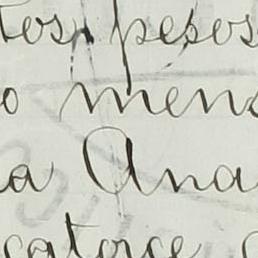 tos, pesos
o mens
a Ana
catorce